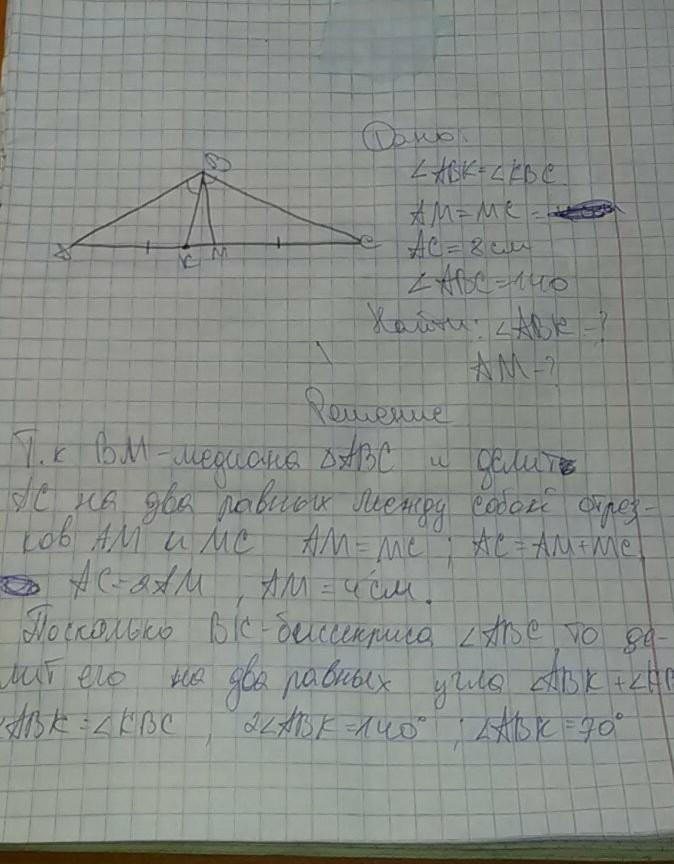 B
A
K M
C
Дано:
∠ABK=∠KBC
AM=MC=
AC=8см
∠ABC=140
Найти: ∠ABK-?
AM-?
Решение
Т.к BM-медиана ΔABC и делит
AC на два равных между собой отрез-
ков AM и MC AM=MC; AC=AM+MC
AC=2AM, AM=4см.
Посколько BK-биссектриса ∠ABC, то де-
лит его на два равных угла ∠ABK+∠
∠ABK=∠KBC, 2∠ABK=140°; ∠ABK=70°